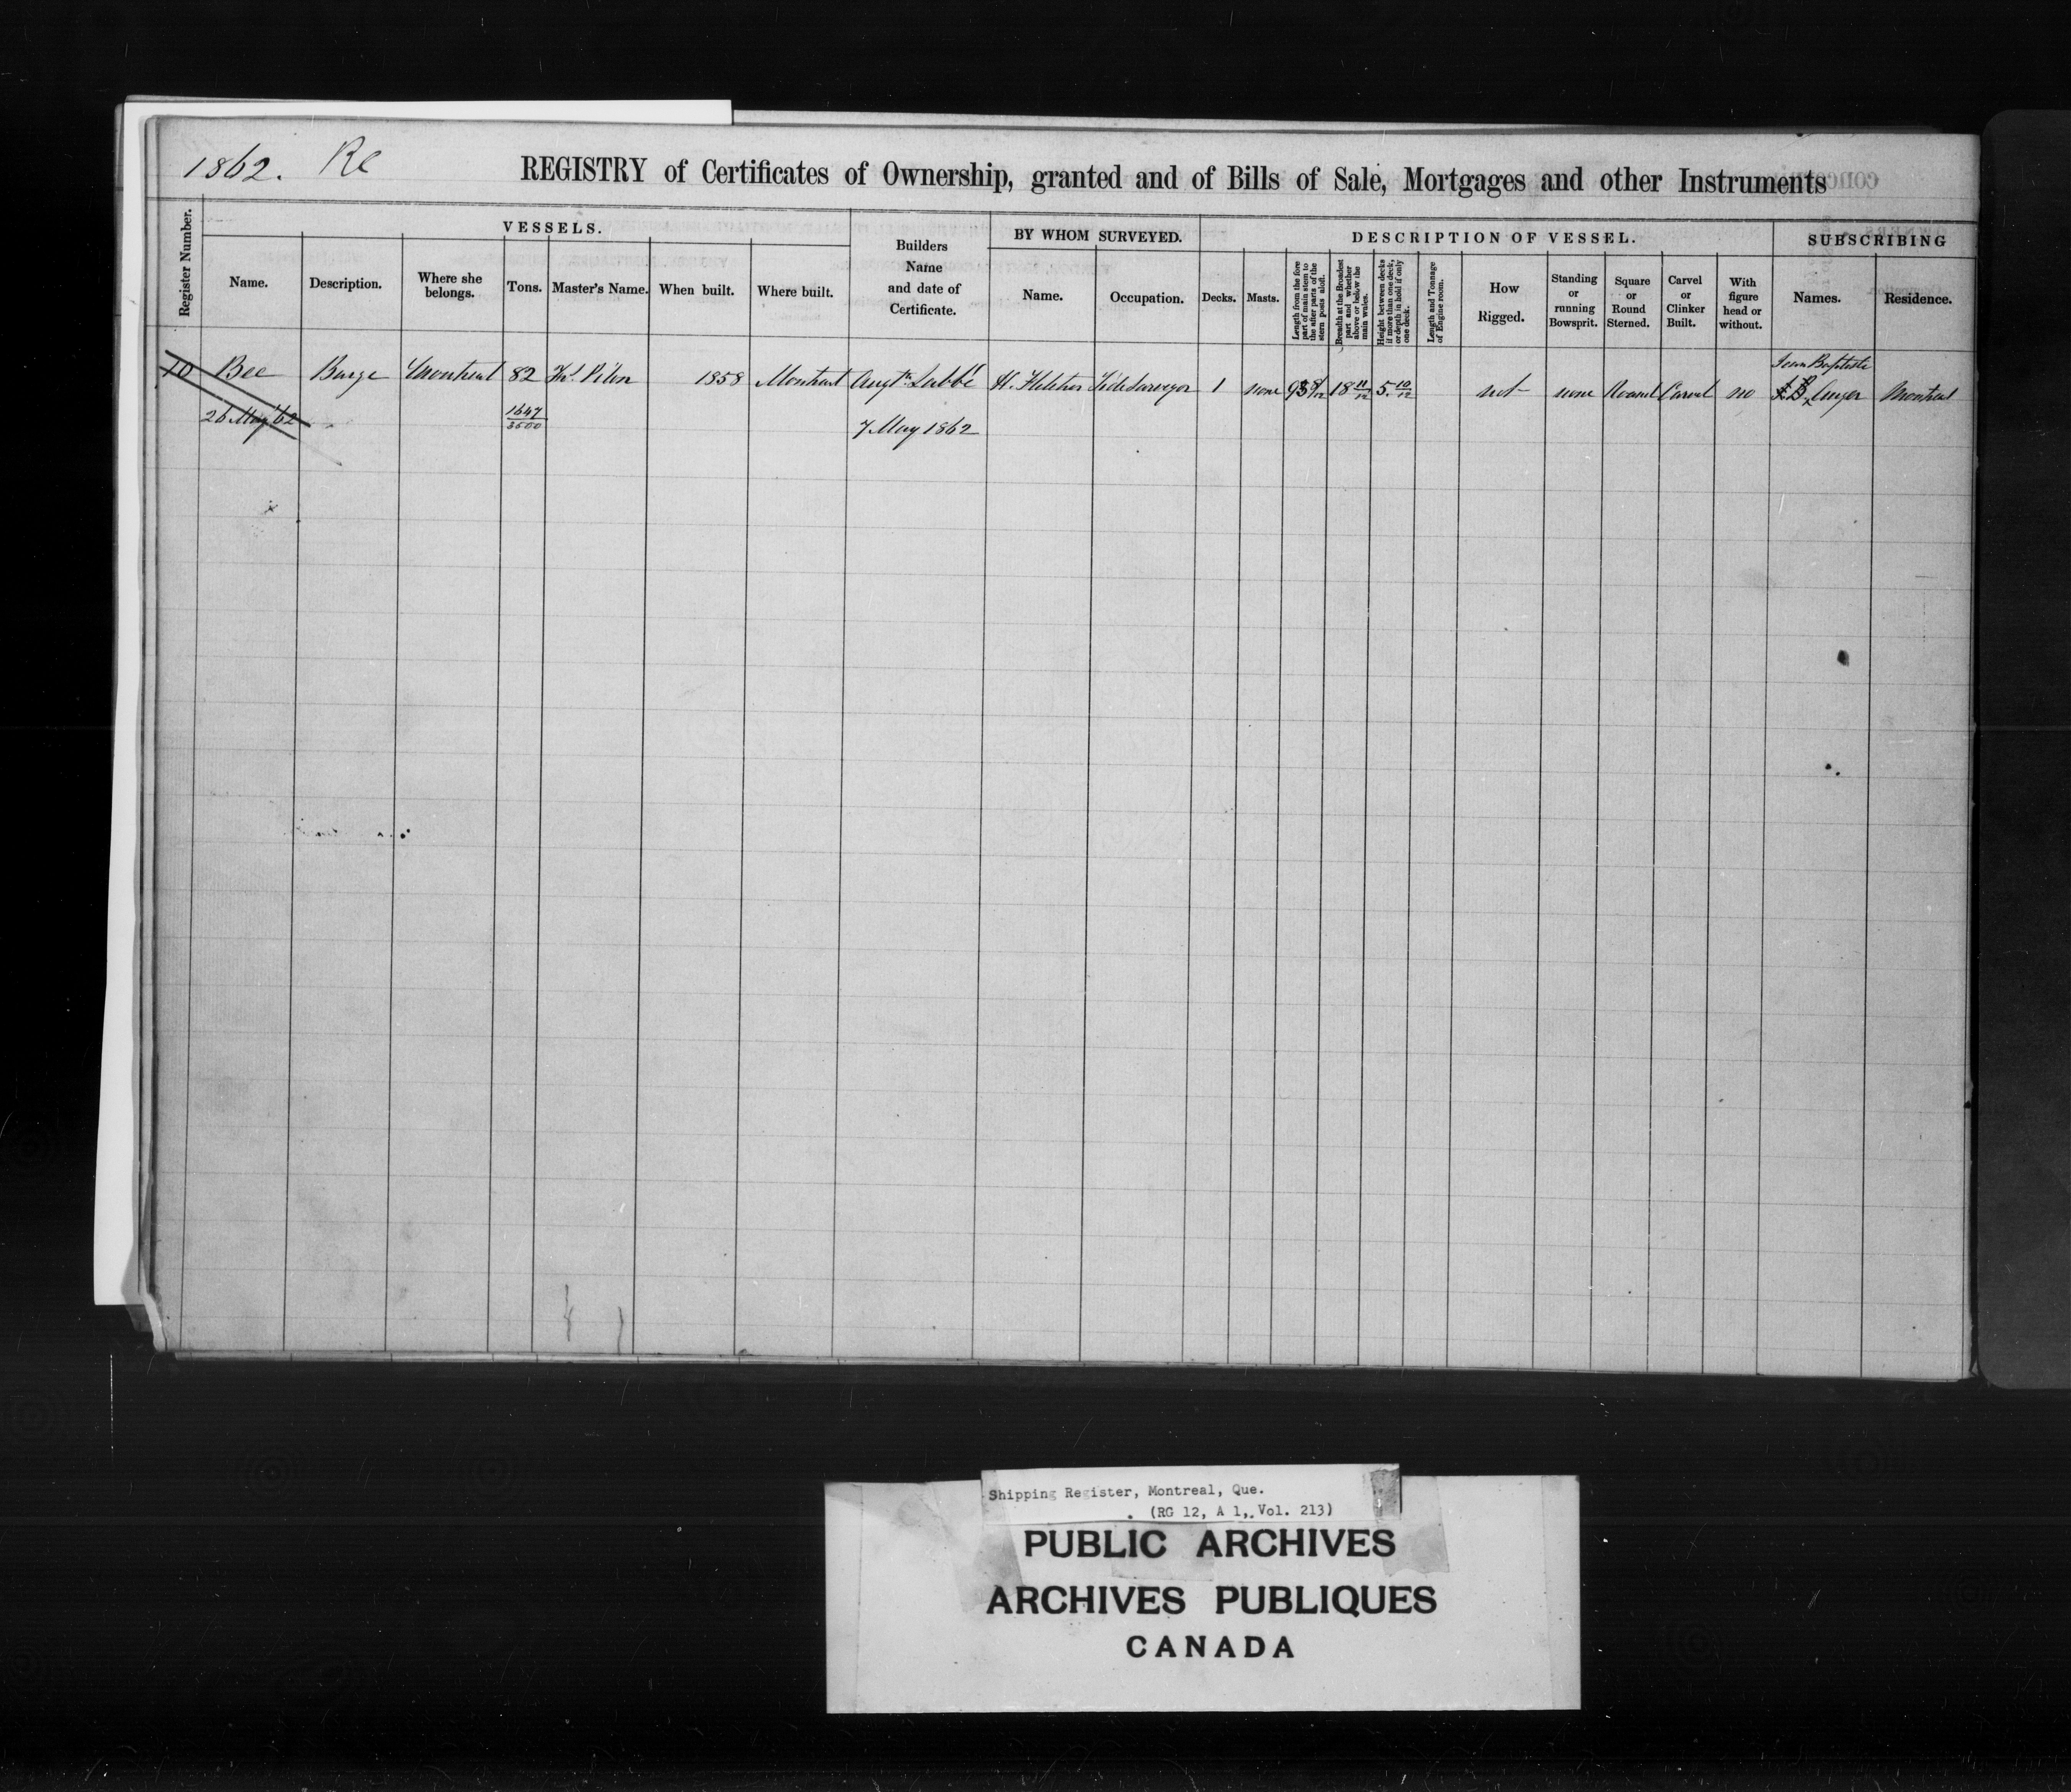 1862. Re
REGISTRY of Certificates of Ownership, granted and of Bills of Sale, Mortgages and other Instruments
Register Number.
VESSELS.
Name.
Description.
Where she
belongs.
Tons.
Master's Name.
When built.
Where built.
Builders
Name
and date of
Certificate.
BY WHOM SURVEYED.
Name.
Occupation.
DESCRIPTION OF VESSEL.
Decks.
Masts.
Length from the fore
part of main stem to
the after parts of the
stern posts aloft.
Breadth at the Broadest
part and whether
above or below the
main wales.
Height between decks
if more than one deck,
or depth in hold if only
one deck.
Length and Tonnage
of Engine room.
How
Rigged.
Standing
or
running
Bowsprit.
Square
or
Round
Sterned.
Carvel
or
Clinker
Built.
With
figure
head or
without.
SUBSCRIBING
Names.
Residence.
Jean Baptiste
10 Bee Barge Montreal 82 Pilon 1858 Montreal Augtn Labbé H. Tide Surveyor 1 none 18 11/12 5. 10/12 not none Round Carvel no J. B. Auger Montreal
26 May '62 1647/3500 7 May 1862
Shipping Register, Montreal, Que.
(RG 12, A 1, Vol. 213)
PUBLIC ARCHIVES
ARCHIVES PUBLIQUES
CANADA